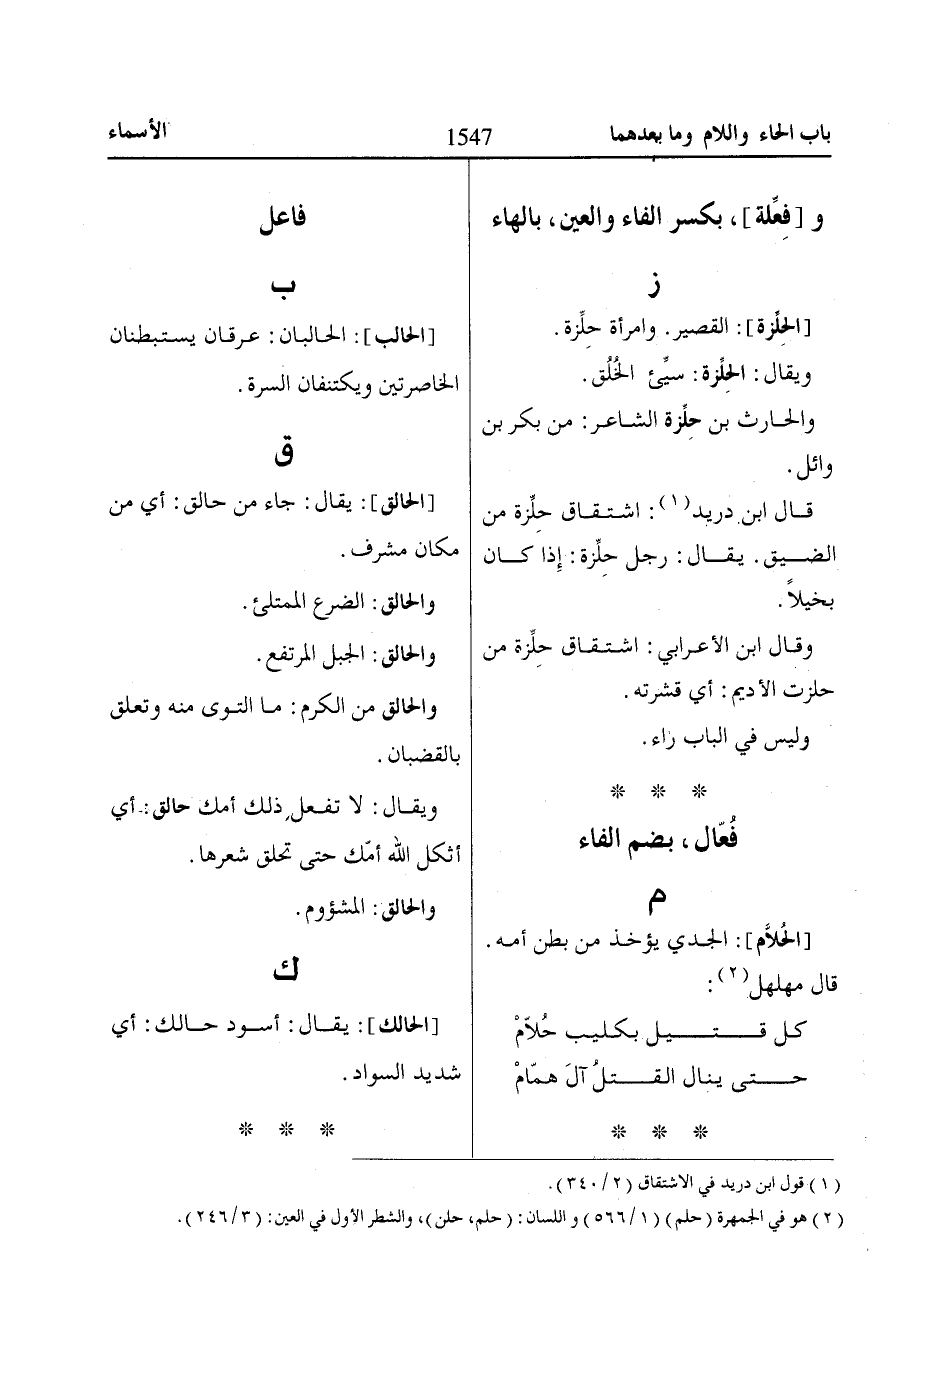 باب الحاء واللام وما بعدهما
1547
الأسماء
و [فِعِّلة]، بكسر الفاء والعين، بالهاء
ز
[الحِلِّزة]: القصير. وامرأة حِلِّزة.
ويقال: الحِلِّزة: سيِّئ الخُلُق.
والحارث بن حِلِّزة الشاعر: من بكر بن
وائل.
قال ابن دريد(١): اشتقاق حِلِّزة من
الضيق. يقال: رجل حِلِّزة: إِذا كان
بخيلاً.
وقال ابن الأعرابي: اشتقاق حِلِّزة من
حلزت الأديم: أي قشرته.
وليس في الباب راء.
* * *
فُعّال، بضم الفاء
م
[الحُلاَّم]: الجدي يؤخذ من بطن أمه.
قال مهلهل(٢):
كل قتيل بكليب حُلاّمْ
حتى ينال القتلُ آلَ همّامْ
* * *
فاعل
ب
[الحالب]: الحالبان: عرقان يستبطنان
الخاصرتين ويكتنفان السرة.
ق
[الحالق]: يقال: جاء من حالق: أي من
مكان مشرف.
والحالق: الضرع الممتلئ.
والحالق: الجبل المرتفع.
والحالق من الكرم: ما التوى منه وتعلق
بالقضبان.
ويقال: لا تفعل ذلك أمك حالق: أي
أثكل الله أمّك حتى تحلق شعرها.
والحالق: المشؤوم.
ك
[الحالك]: يقال: أسود حالك: أي
شديد السواد.
* * *
(١) قول ابن دريد في الاشتقاق (٢/٣٤٠).
(٢) هو في الجمهرة (حلم) (١/٥٦٦) و اللسان: (حلم، حلن)، والشطر الأول في العين: (٣/٢٤٦).